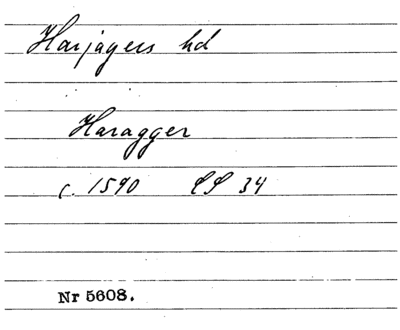 Harjagers hd
Haragger
c. 1590 LS 34
Nr 5608.